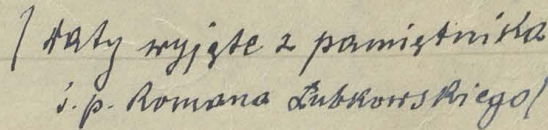 / daty wyjęte z pamiętnika
ś. p. Romana Lubkowskiego/